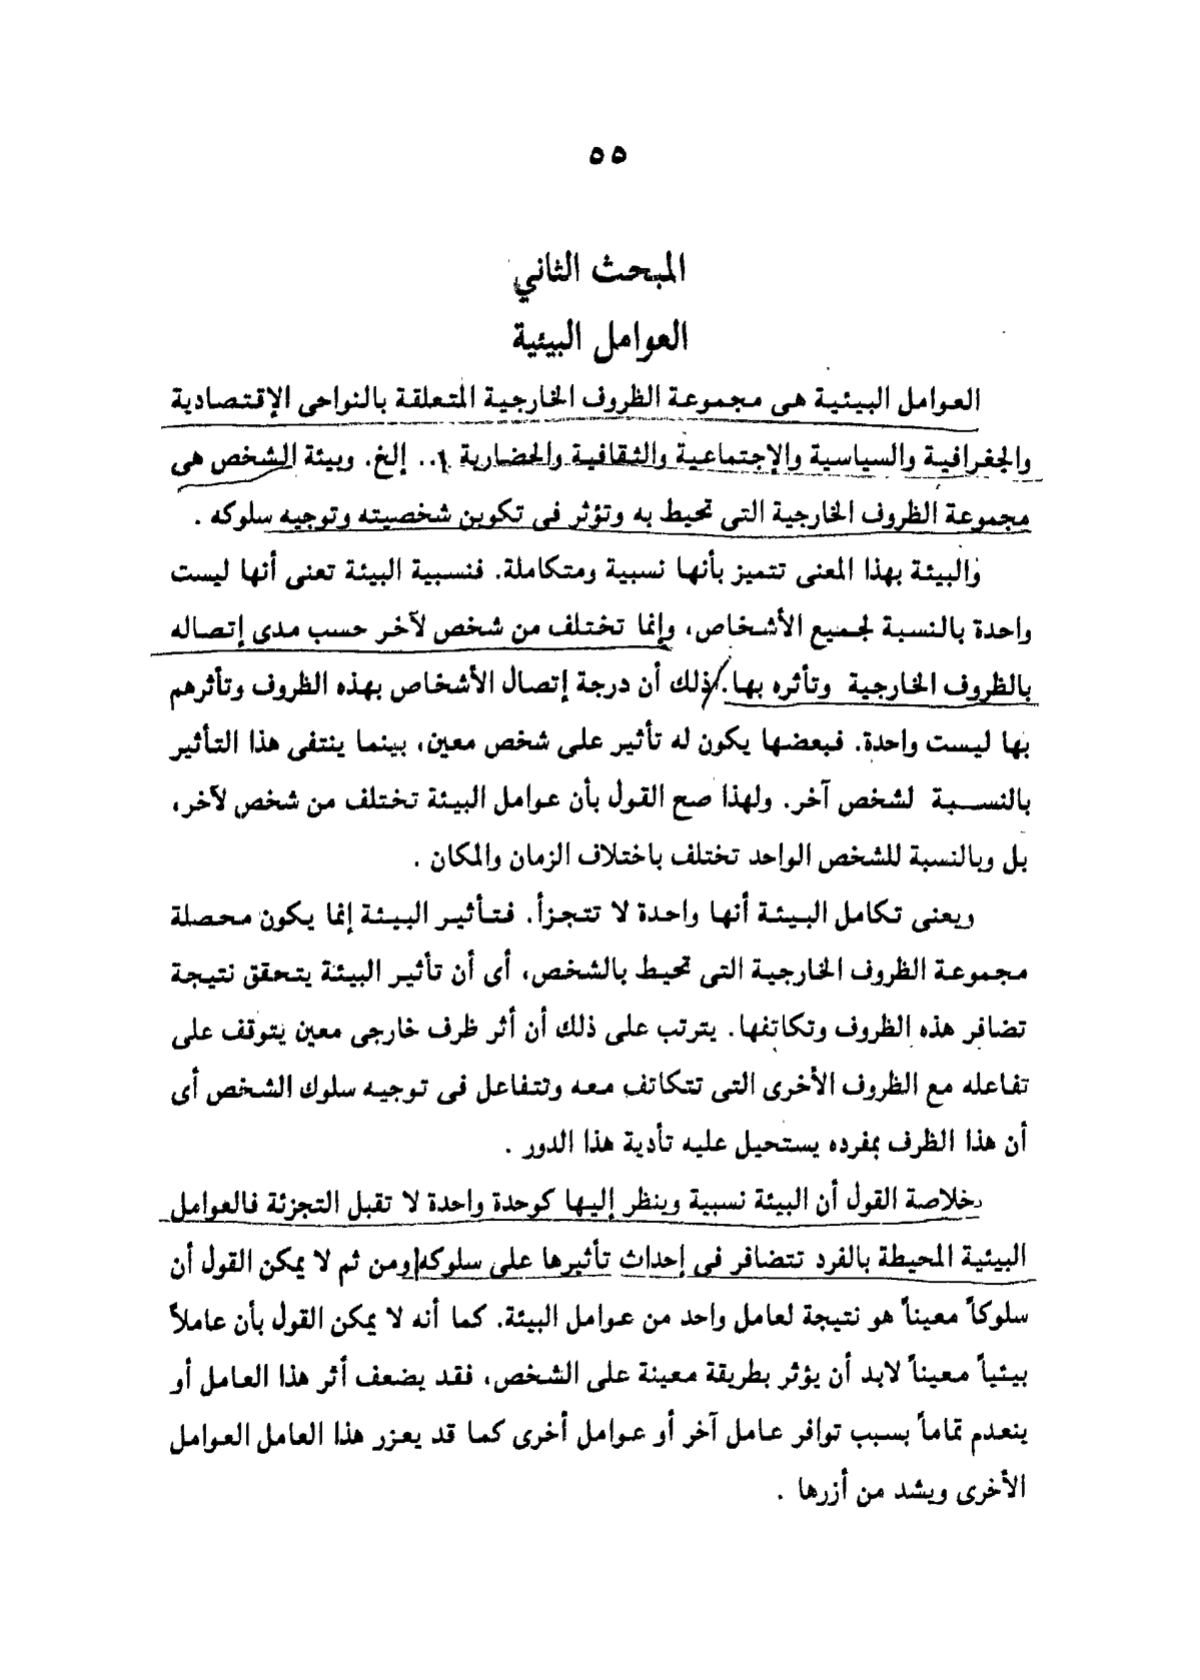 ٥٥
المبحث الثاني
العوامل البيئية
العوامل البيئية هى مجموعة الظروف الخارجية المتعلقة بالنواحى الإقتصادية
والجغرافية والسياسية والإجتماعية والثقافية والحضارية .. إلخ. وبيئة الشخص هى
مجموعة الظروف الخارجية التى تحيط به وتؤثر فى تكوين شخصيته وتوجيه سلوكه .
والبيئة بهذا المعنى تتميز بأنها نسبية ومتكاملة. فنسبية البيئة تعنى أنها ليست
واحدة بالنسبة لجميع الأشخاص، وإنما تختلف من شخص لآخر حسب مدى إتصاله
بالظروف الخارجية وتأثره بها. ذلك أن درجة إتصال الأشخاص بهذه الظروف وتأثرهم
بها ليست واحدة. فبعضها يكون له تأثير على شخص معين، بينما ينتفى هذا التأثير
بالنسبة لشخص آخر. ولهذا صح القول بأن عوامل البيئة تختلف من شخص لآخر،
بل وبالنسبة للشخص الواحد تختلف باختلاف الزمان والمكان .
ويعنى تكامل البيئة أنها واحدة لا تتجزأ. فتأثير البيئة إنما يكون محصلة
مجموعة الظروف الخارجية التى تحيط بالشخص، أى أن تأثير البيئة يتحقق نتيجة
تضافر هذه الظروف وتكاتفها. يترتب على ذلك أن أثر ظرف خارجى معين يتوقف على
تفاعله مع الظروف الأخرى التى تتكاتف معه وتتفاعل فى توجيه سلوك الشخص أى
أن هذا الظرف بمفرده يستحيل عليه تأدية هذا الدور .
خلاصة القول أن البيئة نسبية وينظر إليها كوحدة واحدة لا تقبل التجزئة فالعوامل
البيئية المحيطة بالفرد تتضافر فى إحداث تأثيرها على سلوكه ومن ثم لا يمكن القول أن
سلوكاً معيناً هو نتيجة لعامل واحد من عوامل البيئة. كما أنه لا يمكن القول بأن عاملاً
بيئياً معيناً لابد أن يؤثر بطريقة معينة على الشخص، فقد يضعف أثر هذا العامل أو
ينعدم تماماً بسبب توافر عامل آخر أو عوامل أخرى كما قد يعزر هذا العامل العوامل
الأخرى ويشد من أزرها .